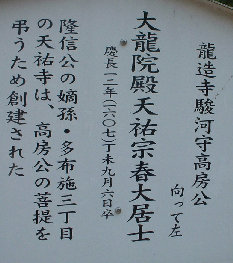 龍造寺駿河守高房公
向って左
大龍院殿天祐宗春大居士
慶長一二年(一六〇七)丁未九月六日卒
隆信公の嫡孫・多布施三丁目
の天祐寺は、高房公の菩提を
弔うため創建された